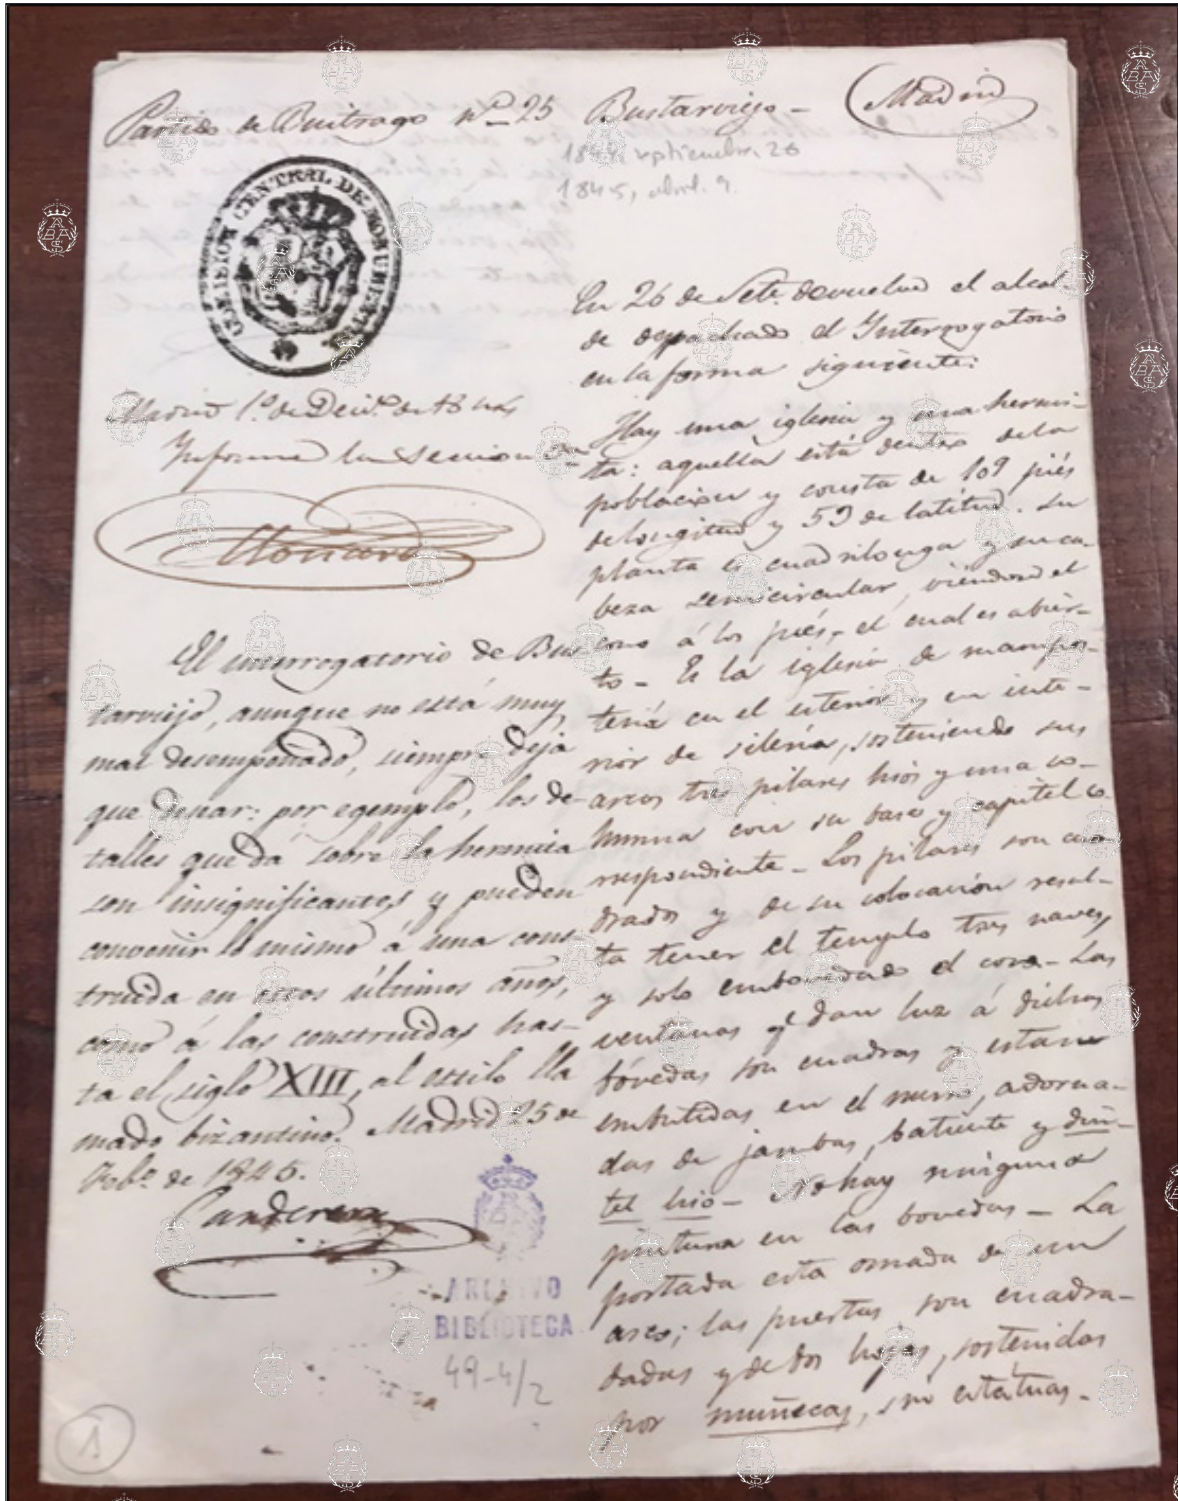 Partido de Buitrago nº 25 Bustarviejo - Madrid
1844, septiembre 26
1845, abril. 9.
COMISION CENTRAL DE MONUMENTOS
Madrid 1.º de Dic.e de 1844
Informe la Seccion
El interrogatorio de Bus
tarviejo, aunque no está muy
mal desempeñado, siempre deja
que desear: por egemplo, los de-
talles que dá sobre la hermita
son insignificantes y pueden
convenir lo mismo á una cons
truida en estos últimos años,
como á las construidas has-
ta el siglo XIII, al estilo lla
mado bizantino. Madrid 25 de
Feb.o de 1845.
Carderera
ARCHIVO
BIBLIOTECA
49-4/2
1
En 26 de Set.e devuelve el alcal-
de despachado el Interrogatorio
en la forma siguiente:
Hay una iglesia y una hermi-
ta: aquella está dentro de la
poblacion y consta de 109 piés
de longitud y 59 de latitud. Su
planta es cuadrilonga y su ca-
beza semicircular, viéndose el
coro á los piés, el cual es abier-
to - Es la iglesia de mampos-
teria en el esterior y en inte-
rior de sileria, sosteniendo sus
arcos tres pilares lisos y una co-
lumna con su base y capitel co-
rrespondiente - Los pilares son cua
drados y de su colocacion resul-
ta tener el templo tres naves,
y solo embovedado el coro - Las
ventanas q.e dan luz á dichas
bóvedas son cuadras y estan
embutidas en el muro, adorna-
das de jambas, batiente y din-
tel liso - No hay ninguna
pintura en las bovedas - La
portada esta ornada de un
arco; las puertas son cuadra-
dadas y de dos hojas, sostenidas
por muñecas, sin estatuas.-